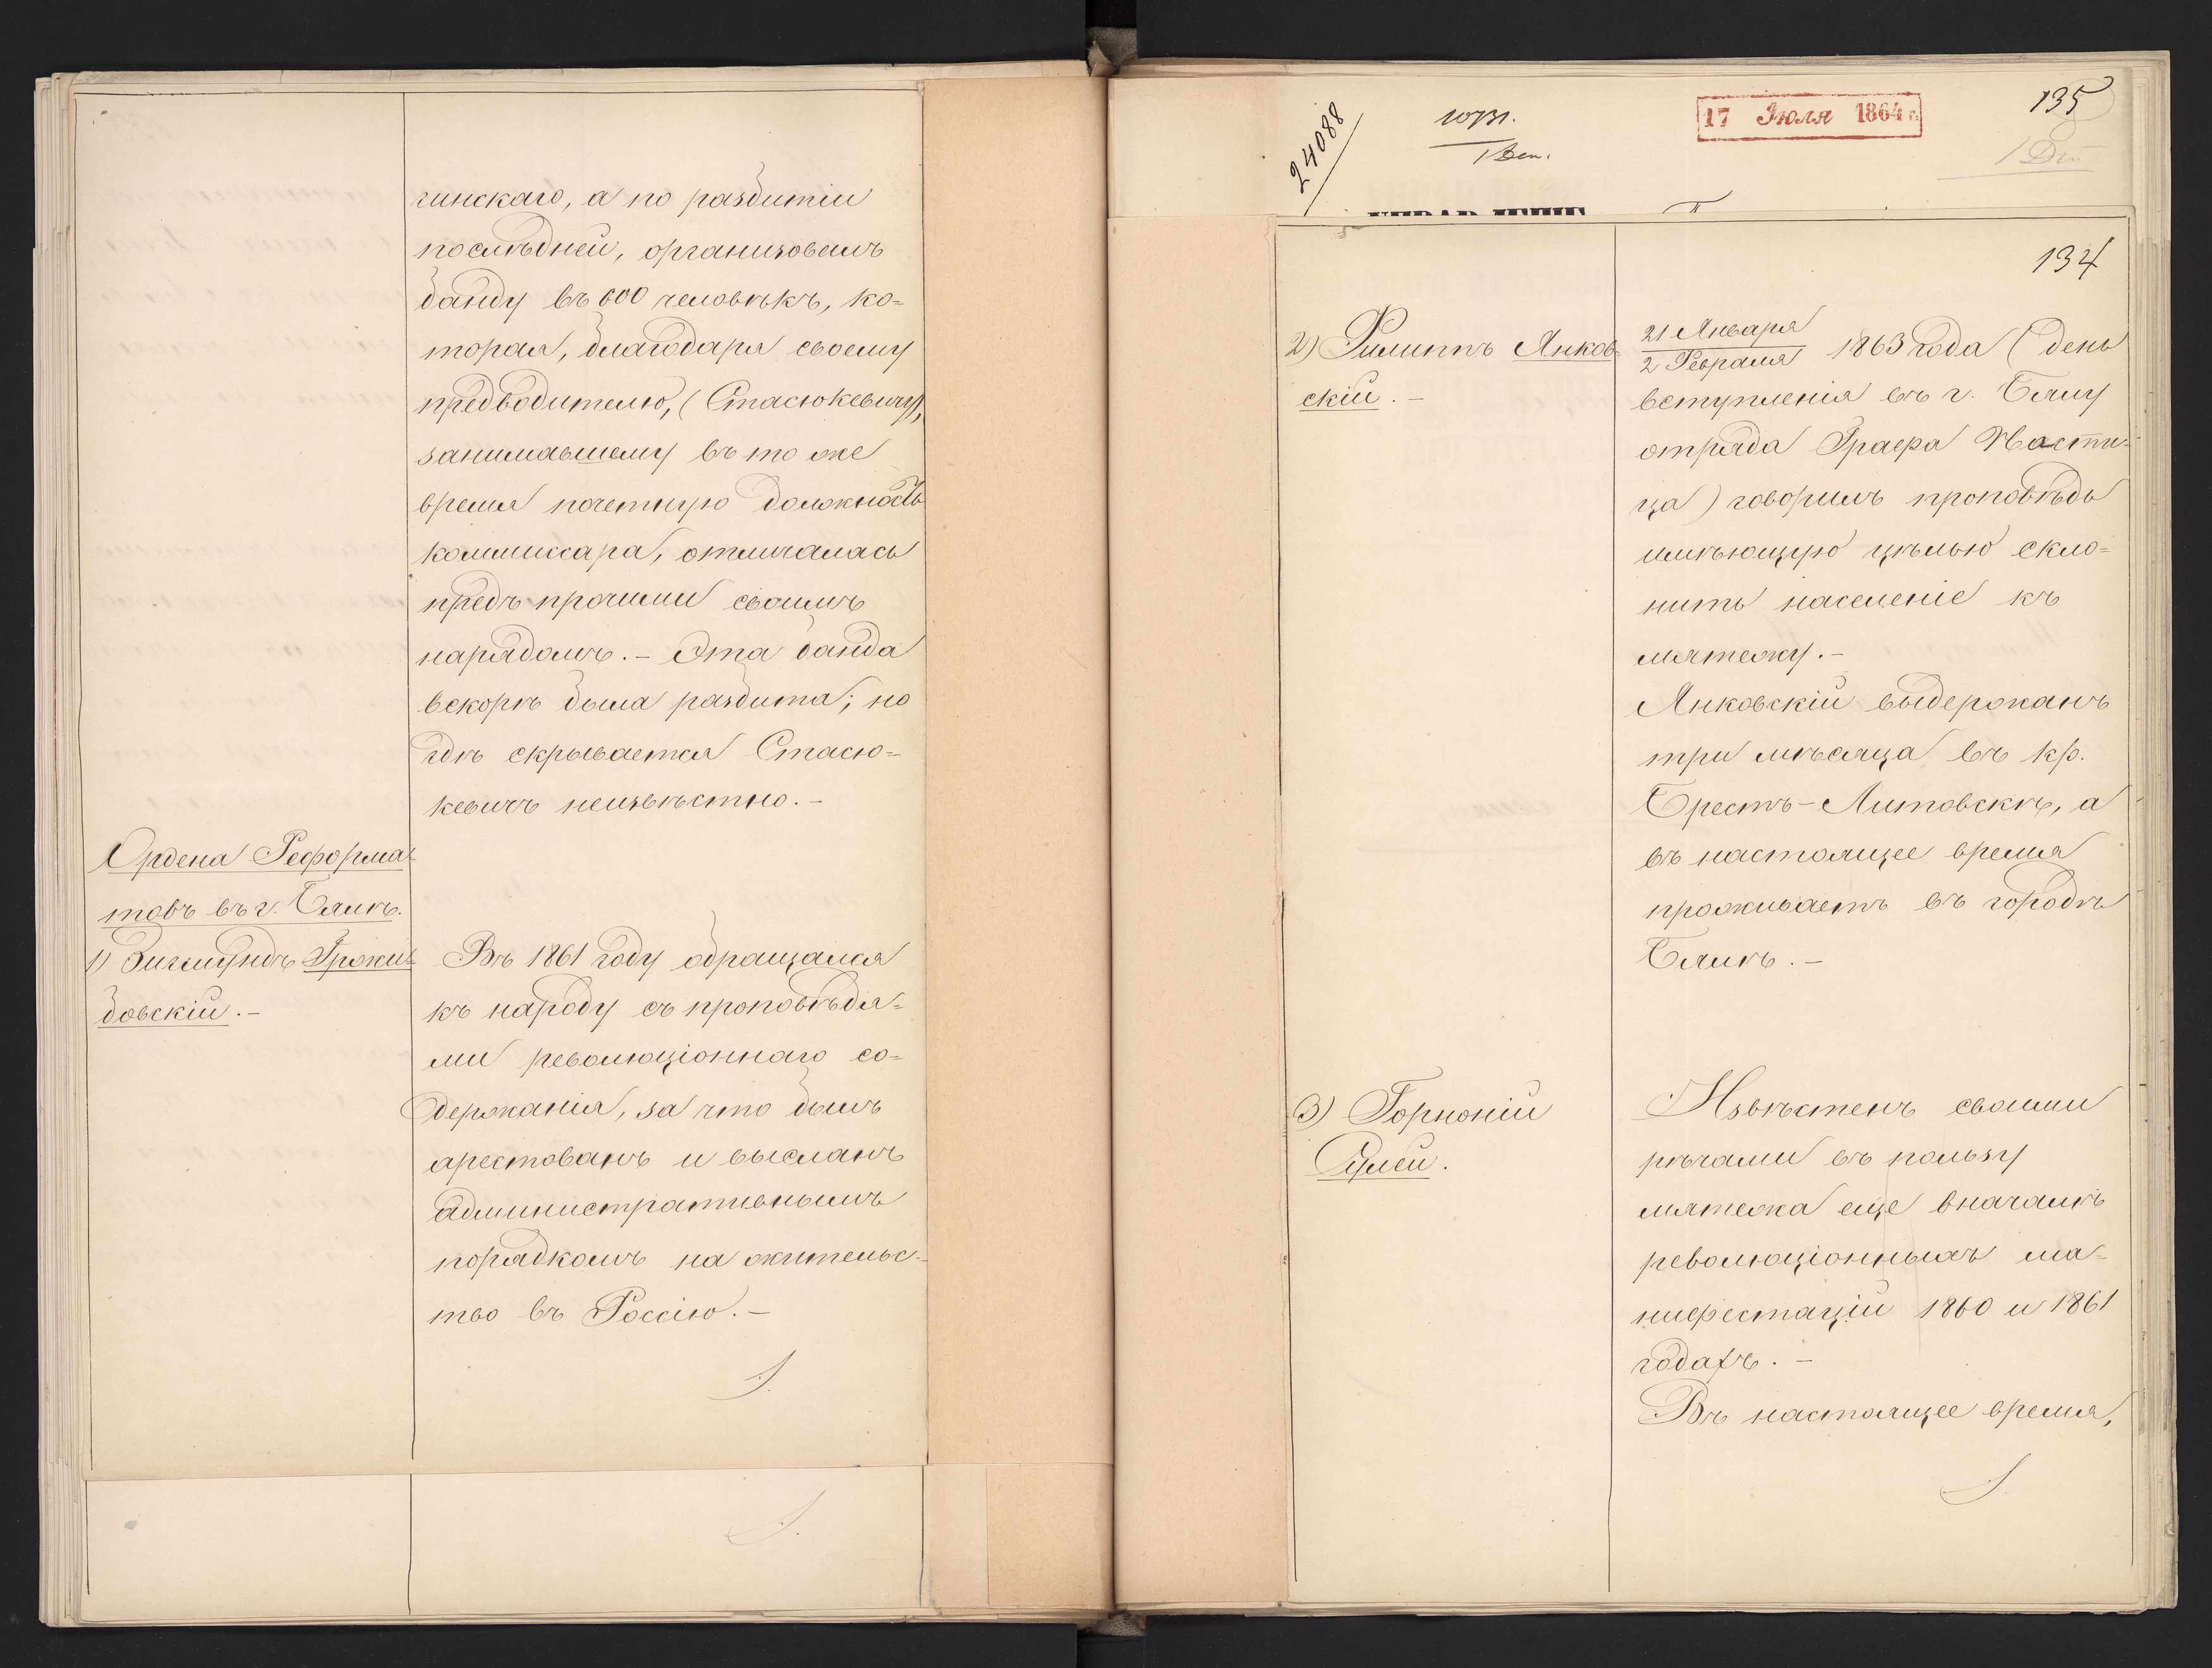 гинскаго, а по разбитіи
послѣдней, организовалъ
банду въ 600 человѣкъ, ко=
торая, благодаря своему
предводителю, (Стасюкевичу),
занимавшему въ то же
время почетную должность
коммиссара, отличалась
предъ прочими своимъ
нарядомъ. – Эта банда
вскорѣ была разбита; но
гдѣ скрывается Стасю=
кевичъ неизвѣстно. –
Ордена Реформа=
товъ въ г. Бялѣ.
1) Зигмундъ Грожи=
бовскій. –
Въ 1861 году обращался
къ народу съ проповѣдя=
ми революціоннаго со=
держанія, за что былъ
арестованъ и высланъ
административнымъ
порядкомъ на жительс=
тво въ Россію. –
24088
10731.
17 Іюля 1864 г.
135
134
2) Филиппъ Янков=
скій. –
21 Января
2 Февраля 1863 года (день
вступленія въ г. Бялу
отряда Графа Ностиц=
ца) говорилъ проповѣдь
имѣющую цѣлью скло=
нить населеніе къ
мятежу. –
Янковскій выдержанъ
три мѣсяца въ кр.
Брестъ-Литовскѣ, а
въ настоящее время
проживаетъ въ городѣ
Бялѣ. –
3) Горноній
Сулей.
Извѣстенъ своими
рѣчами въ пользу
мятежа еще вначалѣ
революціонныхъ ма=
нифестацій 1860 и 1861
годахъ. –
Въ настоящее время,